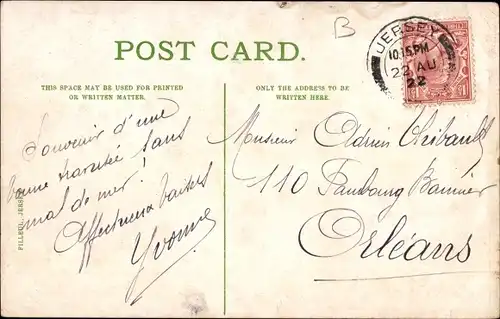 B
JERSEY
10.15 PM
22 AU
22
POST CARD.
THIS SPACE MAY BE USED FOR PRINTED
OR WRITTEN MATTER.
ONLY THE ADDRESS TO BE
WRITTEN HERE.
Souvenir d'une
bonne traversée sans
mal de mer!
Affectueux baisers
Yvonne
Monsieur Adrien Thibault
110 Faubourg Bannier
Orléans
PILLEUL, JERSEY